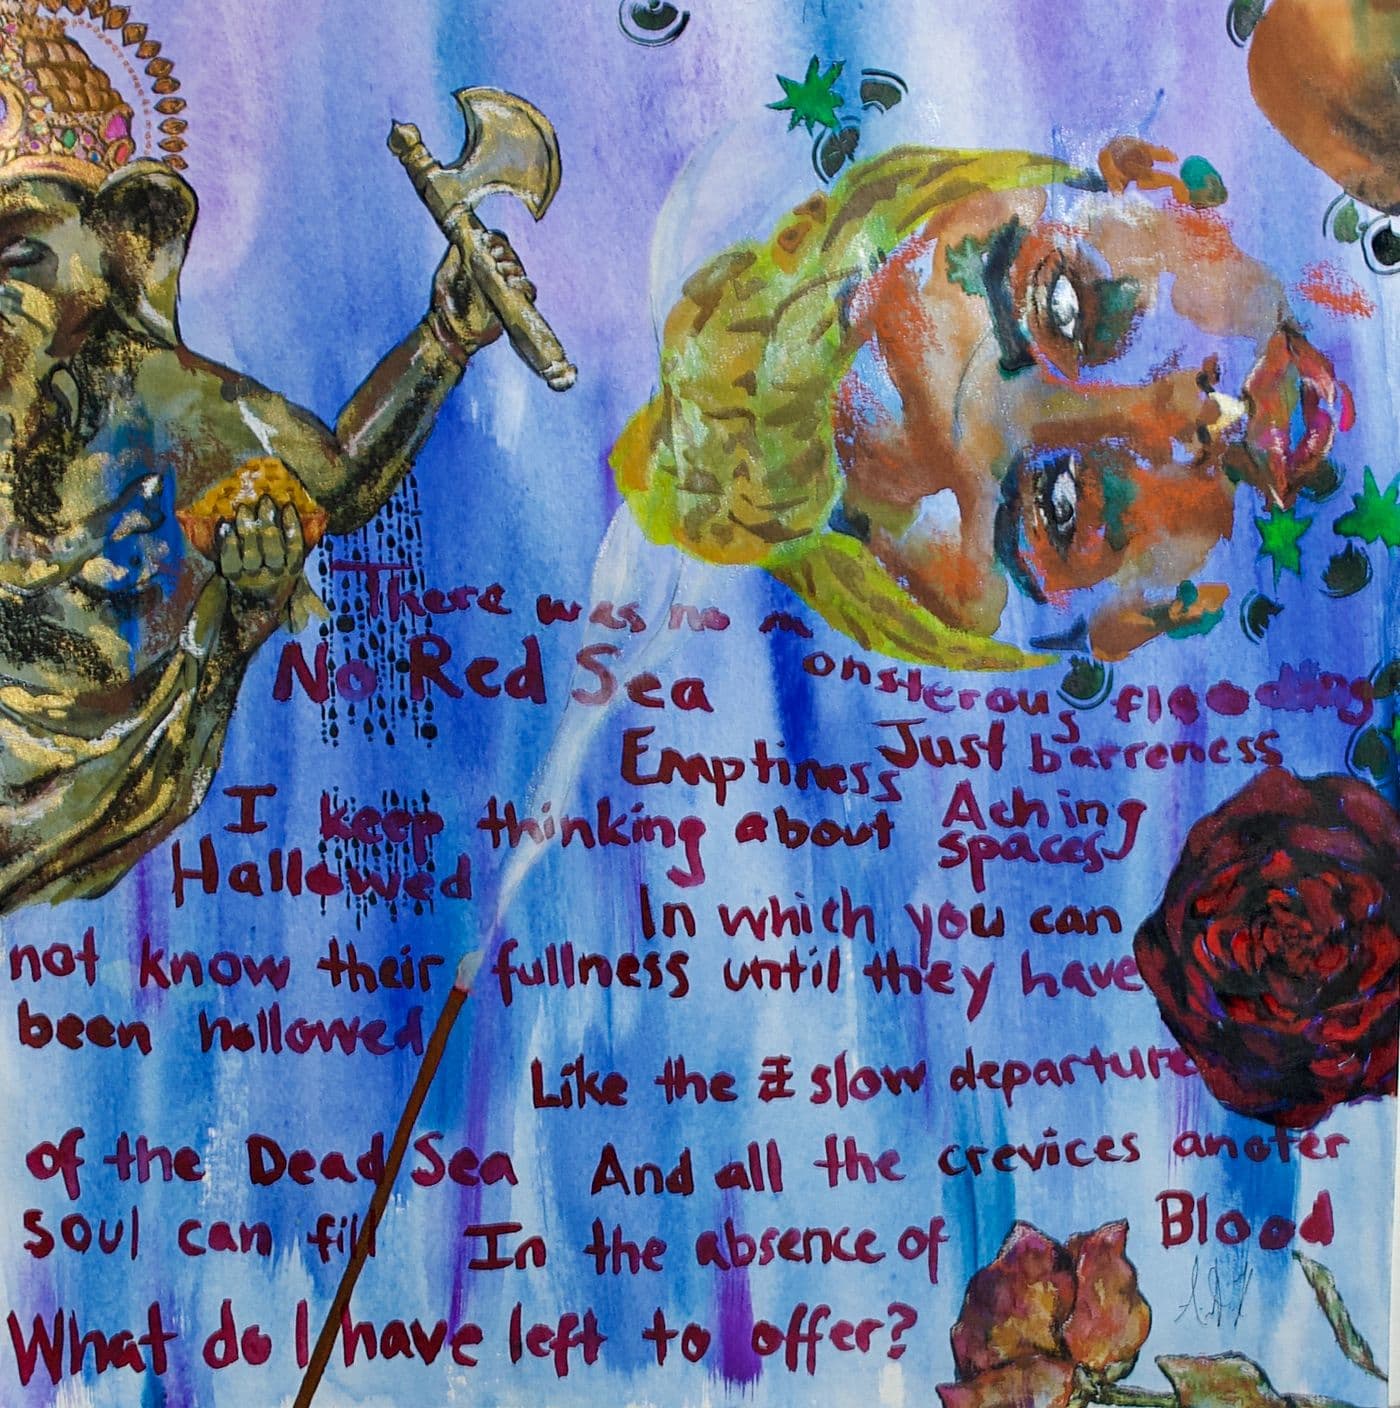 There was no monsterous flooding
No Red Sea
Emptiness Just barreness
I keep thinking about Aching spaces
Hallowed
In which you can
not know their fullness until they have
been hollowed
Like the slow departure
of the Dead Sea And all the crevices anoter
soul can fill In the absence of Blood
What do I have left to offer?